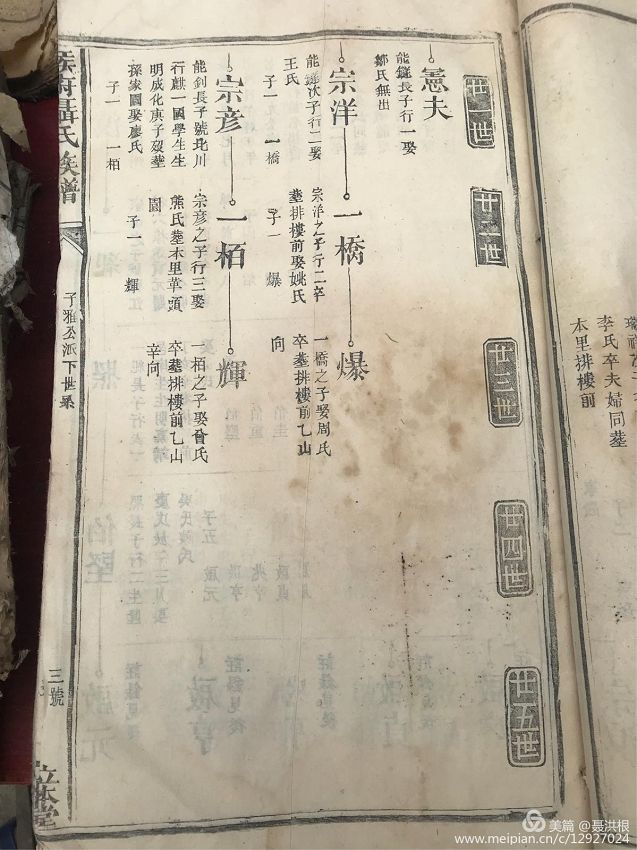 本里排樓前
李氏卒夫婦同塟
廿一世
廿二世
廿三世
廿四世
廿五世
憲夫
能鏟長子行一娶
鄒氏無出
宗洋
能鏟次子行二娶
王氏
子一 橋
一橋
宗洋之子行二卒
塟排樓前娶姚氏
子一 爆
爆
一橋之子娶周氏
卒塟排樓前乙山
向
宗彥
能釗長子號北川
行麒一國學生生
明成化庚子歿塟
孫家園娶廖氏
子一 一栢
一栢
宗彥之子行三娶
熊氏塟木里草頭
園
子一 輝
輝
一栢之子娶曾氏
卒塟排樓前乙山
辛向
聶氏族譜
子雅公派下世系
三號
立本堂
美篇 @聂洪根
www.meipian.cn/c/12927024